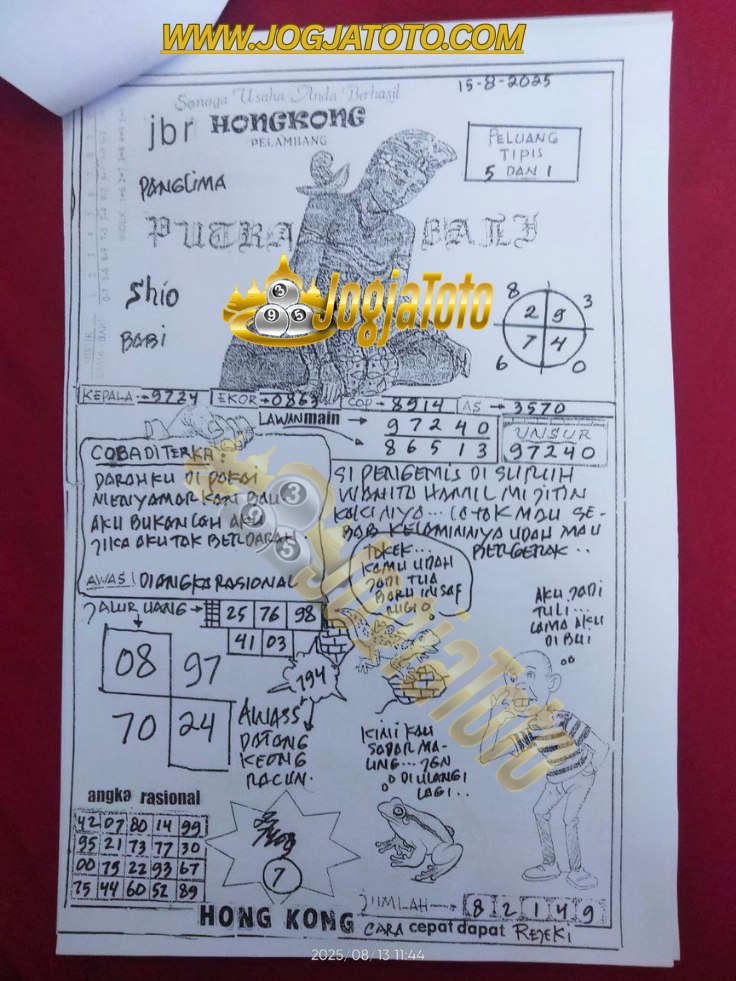 WWW.JOGJATOTO.COM
15-8-2025
Semoga Usaha Anda Berhasil
jbr HONGKONG
PELAMBANG
PELUANG
TIPIS
5 DAN 1
PANGLIMA
PUTRA BALI
Shio
BABI
JogjaToto
8 3
2 9
7 4
6 0
KEPALA → 9724 EKOR → 0863 COP → 8914 AS → 3570
LAWAN main → 97240
86513
UNSUR
97240
COBA DITERKA:
DARAHKU DI PAKAI
MENYAMARKAN BAU
AKU BUKANLAH AKU
JIKA AKU TAK BERDARAH.
AWAS! DIANGKA RASIONAL
SI PENGEMIS DI SURUH
WANITA HAMIL MIJITIN
KAKINYA...
BAB KELAMINNYA UDAH MAU
BERGERAK..
TOKEK...
KAMU UDAH
JADI TUA
BARU INSAF
AKU JADI
TULI...
LAMA AKU
DI BUI
JALUR UANG → 25 76 98
41 03
08 97
70 24
194
AWASS
DATANG
KEONG
RACUN.
KINI KAU
SADAR MA-
UNG... JGN
DI ULANGI
LAGI..
angka rasional
42 07 80 14 99
95 21 73 77 30
00 75 22 93 67
75 44 60 52 89
7
JogjaToto
JUMLAH → 8 2 1 4 9
HONG KONG CARA cepat dapat REJEKI
2025/08/13 11:44